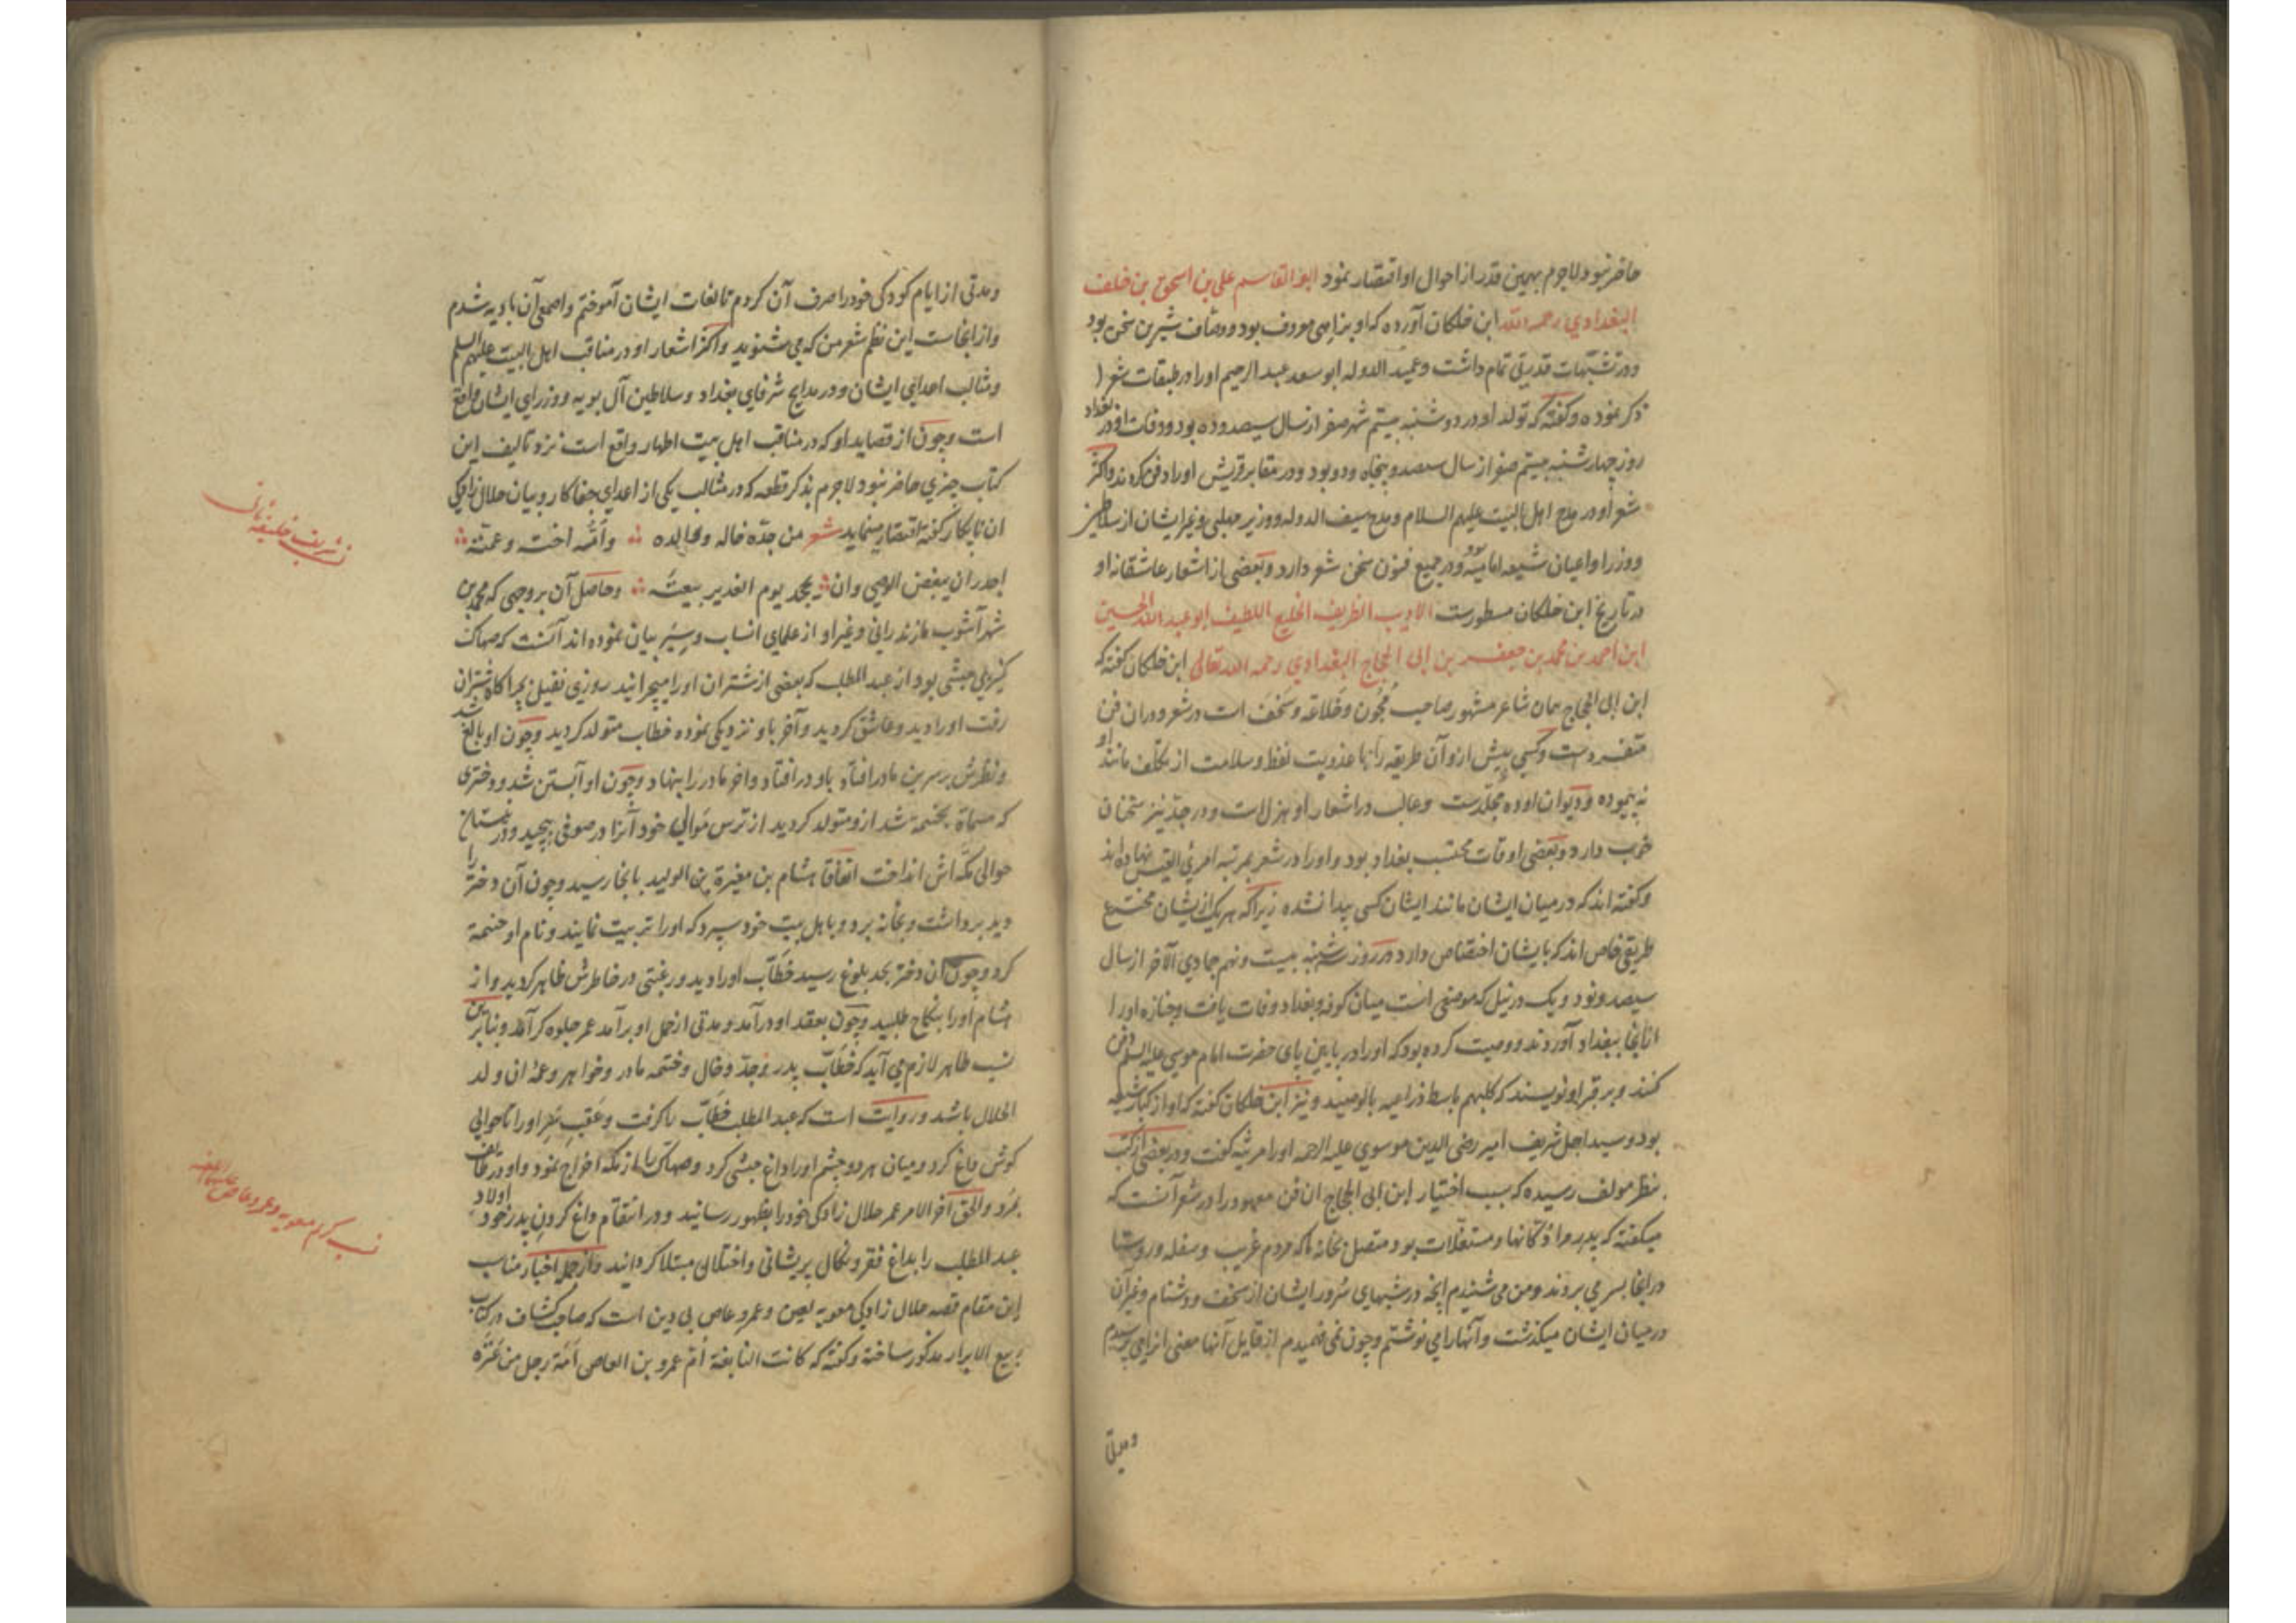 حاضر نبود لاجرم بهمین قدر از احوال او اقتصار نمود ابو القاسم علی بن اسحق بن خلف
البغدادي رحمه الله ابن خلکان آورده که او بزاهی معروف بود و وصّاف شیرین سخن بود
ودر تشبیهات قدرتی تمام داشت وعمید الدوله ابو سعد عبد الرحیم اورا در طبقات شعرا
ذکر نموده وکفته که تولد او در دوشنبه بیستم شهر صفر از سال سیصد وده بود ووفات او در بغداد
روز چهارشنبه بیستم صفر از سال سیصد وپنجاه ودو بود ودر مقابر قریش اورا دفن کردند واکثر
شعر او در مدح اهل البیت علیهم السلام ومدح سیف الدوله ووزیر مهلبی وغیر ایشان از سلاطین
ووزرا واعیان شیعه امامیّه بود ودر جمیع فنون سخن شعر دارد وبعضی از اشعار عاشقانه او
در تاریخ ابن خلکان مسطورست الادیب الظریف الخلیع اللطیف ابو عبد الله الحسین
ابن احمد بن محمد بن جعفر بن ابی الحجاج البغدادي رحمه الله تعالی ابن خلکان کفته که
ابن ابی الحجاج همان شاعر مشهور صاحب مُجُون وخلاعة وسُخف است در شعر ودران فن
متفردست وکسی پیش ازو آن طریقه را با عذوبت لفظ وسلامت از تکلف مانند او
نه پیموده ودیوان او ده مجلّدست وغالب در اشعار او هزل است ودر جدّ نیز سخنان
خوب دارد وبعضی اوقات محتسب بغداد بود واورا در شعر بمرتبه امرئ القیس نهاده اند
وکفته اند که در میان ایشان مانند ایشان کسی پیدا نشده زیرا که هر یک از ایشان مخترع
طریقی خاص اند که بایشان اختصاص دارد در روز سه شنبه بیست ونهم جمادي الآخر از سال
سیصد ونود ویک در نیل که موضعی است میان کوفه وبغداد وفات یافت وجنازه اورا
از انجا ببغداد آوردند ووصیت کرده بود که اورا در پایین پای حضرت امام موسی علیه السلم دفن
کنند وبر قبر او نویسند که کلبهم باسط ذراعیه بالوصید ونیز ابن خلکان کفته که او از کبار شیعه
بود وسید اجل شریف امیر رضی الدین موسوي علیه الرحمه اورا مرثیه کفت ودر بعضی از کتب
بنظر مولف رسیده که سبب اختیار ابن ابی الحجاج ان فن معهود را در شعر آنست که
میکفته که پدر مرا دکانها ومستغلّات بود متصل بخانه ما که مردم غریب وسفله وروستا
در انجا بسر می بردند ومن می شنیدم انچه در شبهای سُرور ایشان از سُخف ودشنام وغیر آن
در میان ایشان میکذشت وآنهارا می نوشتم وچون نمی فهمیدم از قایل آنها معنی انرا می پرسیدم
ومدتی از ایام کودکی خودرا صرف آن کردم تا لغات ایشان آموختم واصمعی آن بادیه شدم
واز انجاست این نظم شعر من که می شنوید واکثر اشعار او در مناقب اهل البیت علیهم السلم
ومثالب اعدای ایشان ودر مدایح شرفای بغداد وسلاطین آل بویه ووزرای ایشان واقع
است وچون از قصاید او که در مناقب اهل بیت اطهار واقع است نزد تالیف این
کتاب چیزي حاضر نبود لاجرم بذکر قطعه که در مثالب یکی از اعدای جفا کار وبیان حلال زادکی
ان نابکار کفته اقتصار مینماید شعر من جدّه خاله ووالده وامّه اخته وعمته
اجدر ان یبغض الوصي وان یجحد یوم الغدیر بیعته وحاصل آن بروجهی که محمد بن
شهر آشوب مازندرانی وغیر او از علمای انساب وسِیَر بیان نموده اند آنست که صهاک
کنیزکی حبشی بود از عبد المطلب که بعضی از شتران اورا میچرانید روزی نفیل بچراکاه شتران
رفت اورا دید وعاشق کردید وآخر باو نزدیکی نموده خطاب متولد کردید وچون او بالغ شد
ونظرش بر سرین مادر افتاد باو در افتاد واخر مادر را بنهاد وچون او آبستن شد ودختری
که مسماة بختمه شد ازو متولد کردید از ترس مَوالی خود آنرا در صوفی پیچید ودر
حوالی مکّه اش انداخت اتفاقا هشام بن مغیرة بن الولید بانجا رسید وچون آن دختر را
دید برداشت وبخانه برد وباهل بیت خود سپرد که اورا تربیت نمایند ونام او حنتمة
کرد وچون ان دختر بحد بلوغ رسید خطّاب اورا دید ورغبتی در خاطرش ظاهر کردید واز
هشام اورا بنکاح طلبید وچون بعقد او درآمد ومدتی از حمل او برآمد عمر جلوه کر آمد وبنابرین
نسب ظاهر لازم می آید که خطّاب پدر وجدّ وخال وختمه مادر وخواهر وعمّه ان ولد
الحلال باشد وروایت است که عبد المطلب خطّاب را کرفت وعقب سر اورا تا حوالی
کوش داغ کرد ومیان هر دو چشم اورا داغ حبشی کرد وصهاک را از مکه اخراج نمود واو در طایف
بمُرد والحق آخر الامر عمر حلال زادکی خودرا بظهور رسانید ودر انتقام داغ کردن پدر خود اولاد
عبد المطلب را بداغ فقر ونکال پریشانی واختلال مبتلا کردانید واز جمله اخبار مناسب
این مقام قصه حلال زادکی معویه لعین وعمرو عاص بی دین است که صاحب کشاف در کتاب
ربیع الابرار مذکور ساخته وکفته که کانت النابغة اُمّ عمرو بن العاص اَمَة رجل من عَنَزَه
نسب شریف خلیفه ثانی
نسب کرام معویه وعمرو عاص